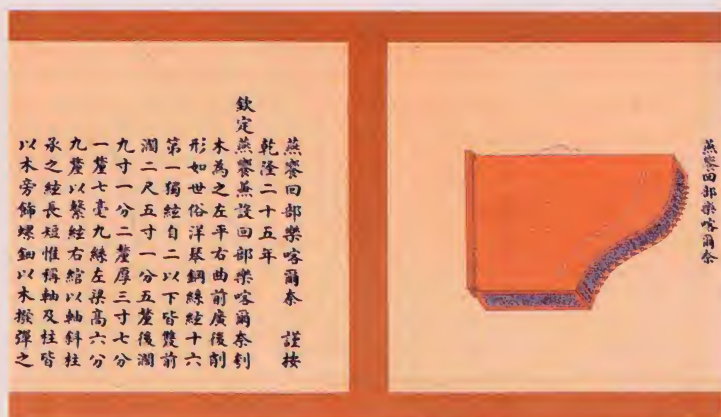 燕饗回部樂喀爾奈
燕饗回部樂喀爾奈　謹按
乾隆二十五年
欽定燕饗兼設回部樂喀爾奈刳
木為之左平右曲前廣後削
形如世俗洋琴鋼絲絃十六
第一獨絃自二以下皆雙前
濶二尺五寸一分五釐後濶
九寸一分二釐厚三寸七分
一釐七毫九絲左梁高六分
九釐以繫絃右綰以軸斜柱
承之絃長短惟稱軸及柱皆
以木旁飾螺鈿以木撥彈之